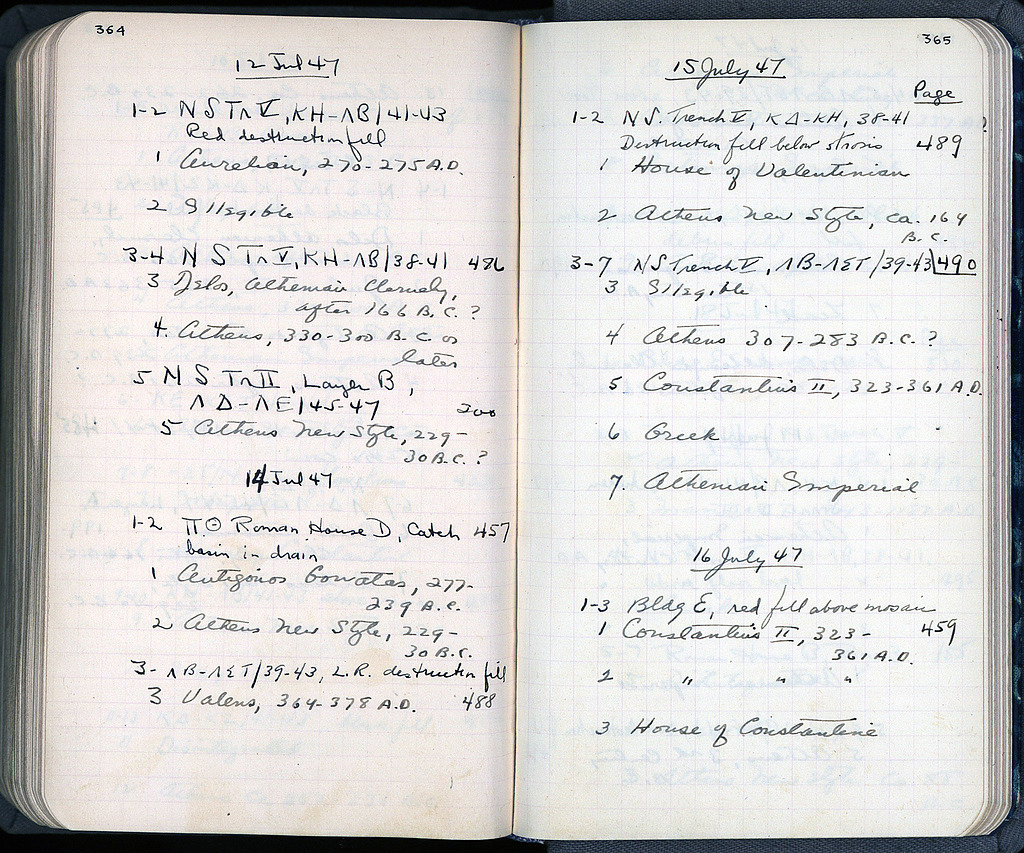 364
12 Jul 47
1-2 N S Tr V, ΚΗ-ΛΒ/41-43
Red destruction fill
1 Aurelian, 270-275 A.D.
2 Illegible
3-4 N S Tr V, ΚΗ-ΛΒ/38-41 486
3 Delos, Athenian Cleruchy,
after 166 B.C. ?
4. Athens, 330-300 B.C. or
later
5 N S Tr II, Layer B,
ΛΔ-ΛΕ/45-47 200
5 Athens New Style, 229-
30 B.C. ?
14 Jul 47
1-2 ΠΘ Roman House D, Catch 457
basin in drain
1 Antigonos Gonatas, 277-
239 B.C.
2 Athens New Style, 229-
30 B.C.
3- ΛΒ-ΛΣΤ/39-43, L.R. destruction fill
3 Valens, 364-378 A.D. 488
365
15 July 47
Page
1-2 NS. Trench V, ΚΔ-ΚΗ, 38-41 ?
Destruction fill below strosis 489
1 House of Valentinian
2 Athens New Style, ca. 164
B.C.
3-7 NS Trench V, ΛΒ-ΛΣΤ/39-43 490
3 Illegible
4 Athens 307-283 B.C. ?
5 Constantius II, 323-361 A.D.
6 Greek
7. Athenian Imperial
16 July 47
1-3 Bldg E, red fill above mosaic
1 Constantius II, 323- 459
361 A.D.
2 " " "
3 House of Constantine